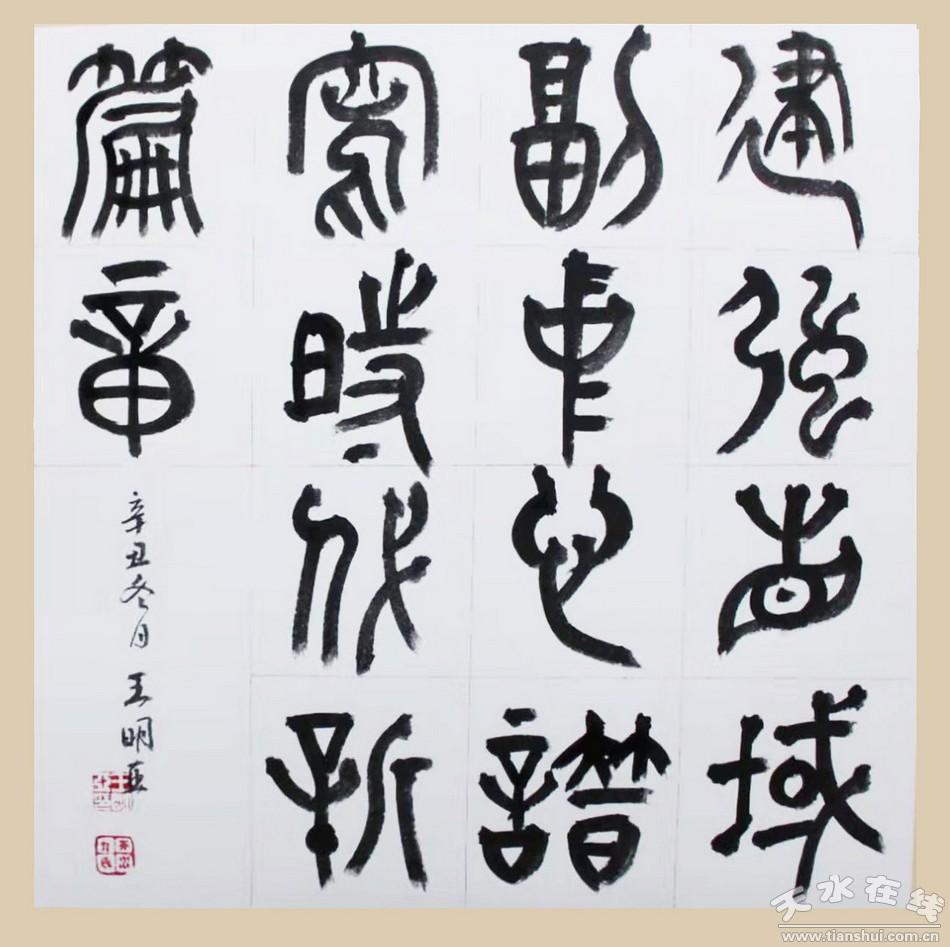 建強省域
副中心譜
寫時代新
篇章
辛丑冬月 王明
天水在线
www.tianshui.com.cn